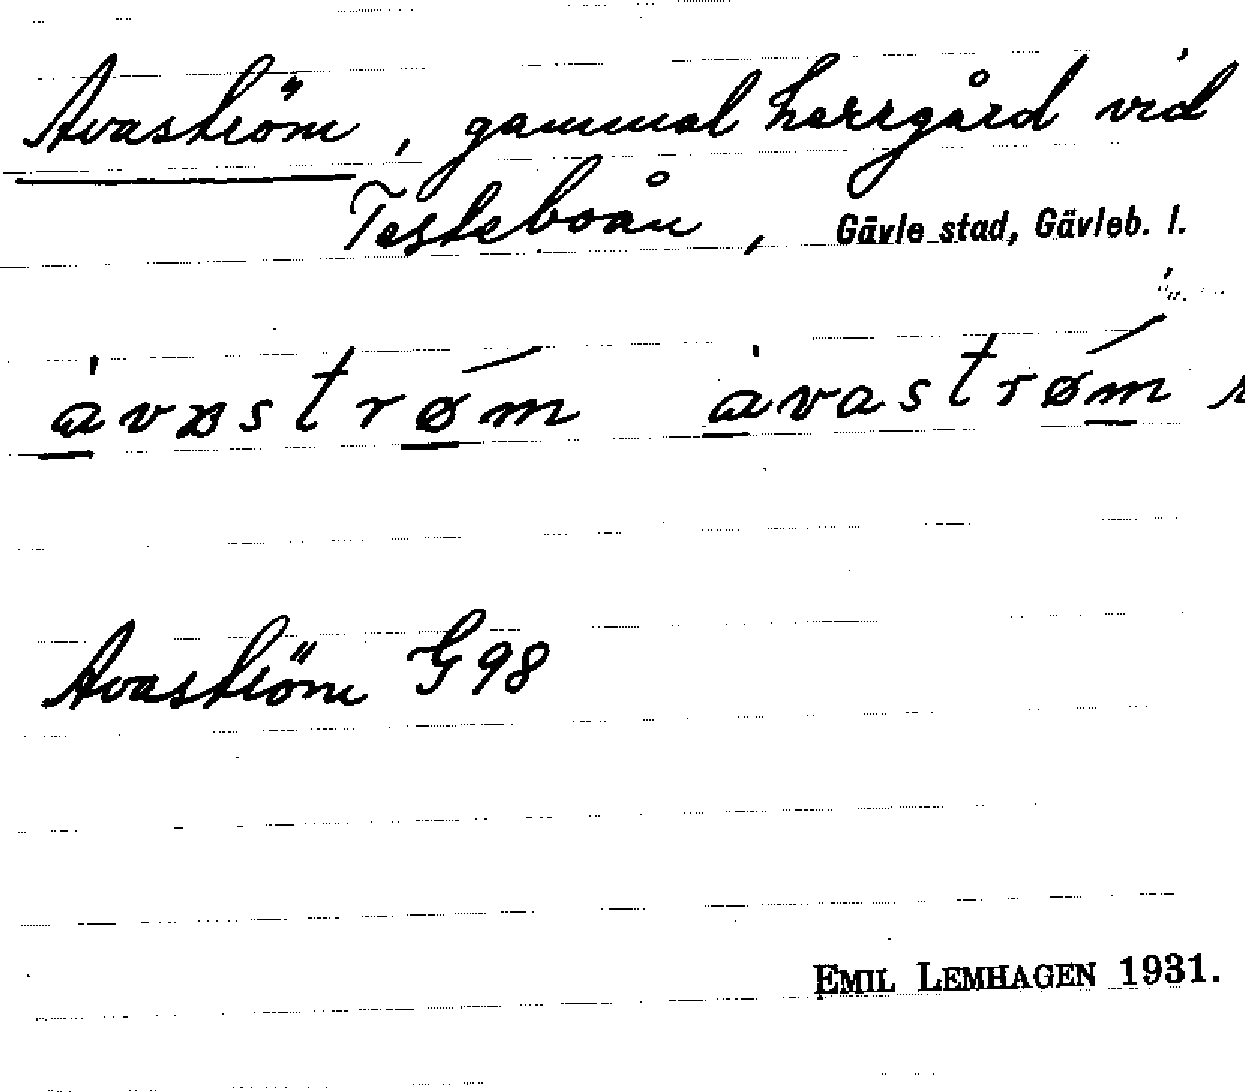 Avaström, gammal herrgård vid
Testeboån, Gävle stad, Gävleb. l.
àvɒstrøm àvastrøm
Avaström G98
EMIL LEMHAGEN 1931.